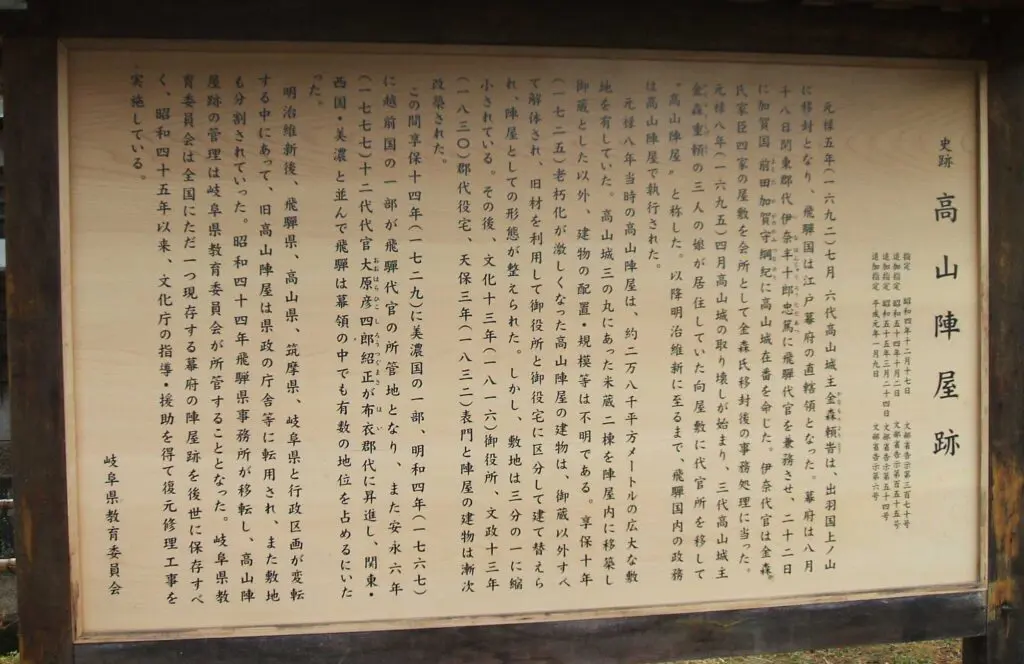 史跡 高山陣屋跡
指定 昭和四年十二月十七日 文部省告示第三百七十号
追加指定 昭和五十四年十月二日 文部省告示第百五十五号
追加指定 昭和五十五年三月二十四日 文部省告示第五十四号
追加指定 平成元年一月九日 文部省告示第六号
元禄五年(一六九二)七月 六代高山城主金森頼旹は、出羽国上ノ山
に移封となり、飛騨国は江戸幕府の直轄領となった。幕府は八月
十八日関東郡代 伊奈半十郎忠篤に飛騨代官を兼務させ、二十二日
に加賀国 前田加賀守綱紀に高山城在番を命じた。伊奈代官は金森
氏家臣四家の屋敷を会所として金森氏移封後の事務処理に当った。
元禄八年(一六九五)四月高山城の取り壊しが始まり、三代高山城主
金森重頼の三人の娘が居住していた向屋敷に代官所を移して
“高山陣屋”と称した。以降明治維新に至るまで、飛騨国内の政務
は高山陣屋で執行された。
元禄八年当時の高山陣屋は、約二万八千平方メートルの広大な敷
地を有していた。高山城三の丸にあった米蔵二棟を陣屋内に移築し
御蔵とした以外、建物の配置・規模等は不明である。享保十年
(一七二五)老朽化が激しくなった高山陣屋の建物は、御蔵以外すべ
て解体され、旧材を利用して御役所と御役宅に区分して建て替えら
れ、陣屋としての形態が整えられた。しかし、敷地は三分の一に縮
小されている。その後、文化十三年(一八一六)御役所、文政十三年
(一八三〇)郡代役宅、天保三年(一八三二)表門と陣屋の建物は漸次
改築された。
この間享保十四年(一七二九)に美濃国の一部、明和四年(一七六七)
に越前国の一部が飛騨代官の所管地となり、また安永六年
(一七七七)十二代代官大原彦四郎紹正が布衣郡代に昇進し、関東・
西国・美濃と並んで飛騨は幕領の中でも有数の地位を占めるにいた
った。
明治維新後、飛騨県、高山県、筑摩県、岐阜県と行政区画が変転
する中にあって、旧高山陣屋は県政の庁舎等に転用され、また敷地
も分割されていった。昭和四十四年飛騨県事務所が移転し、高山陣
屋跡の管理は岐阜県教育委員会が所管することとなった。岐阜県教
育委員会は全国にただ一つ現存する幕府の陣屋跡を後世に保存すべ
く、昭和四十五年以来、文化庁の指導・援助を得て復元修理工事を
実施している。
岐阜県教育委員会